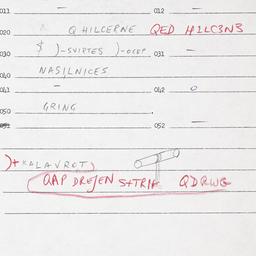 011 — 012 —
020 Q HILCERNE QED H1LC3N3
030 $ )-SVIPTES )-OCEP 031 —
040 NASILNICES
041 — 042 O
050 GRING
051 052 —
)+ KALAVROT)
QAP DREJEN S+TRIH QDRWG